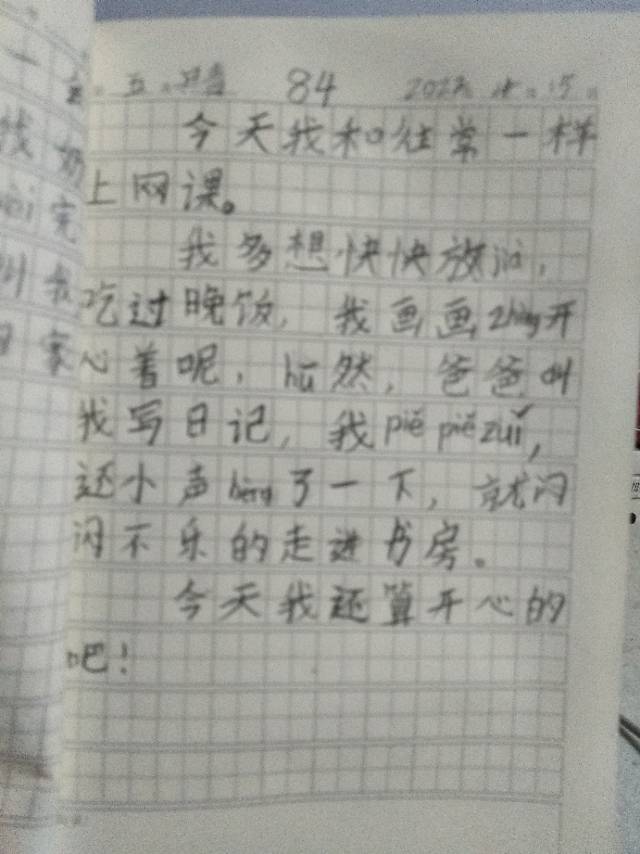 84
今天我和往常一样
上网课。
我多想快快放假,
吃过晚饭, 我画画zhèng开
心着呢, hū然, 爸爸叫
我写日记, 我piě piě zuǐ,
还小声hēng了一下, 就闷
闷不乐的走进书房。
今天我还算开心的
吧!